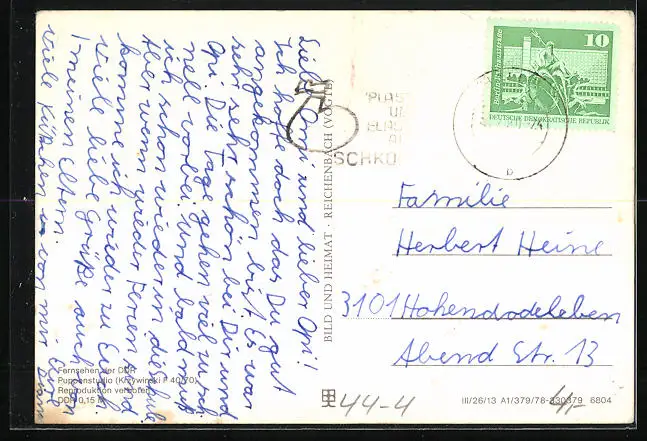 Liebe Omi und lieber Opi!
Ich hoffe doch das Du gut
angekommen bist. Es war
sehr sehr schön bei Dir und
Opi. Die Tage gehen viel zu sch
nell vorbei und bald muß
ich schon wieder in die Schule.
Aber wenn wieder Ferien sind
komme ich wieder zu Euch.
Viele liebe Grüße auch von
meinen Eltern.
Viele Küßchen von mir Eure
BILD UND HEIMAT · REICHENBACH (VOGTL
Fernsehen der DDR
Puppenstudio (Krzywinski F 40/70)
Reproduktion verboten
DDR 0,15 M
PLAS
EL
SCHKO
10
Berlin, Rathausstraße
DEUTSCHE DEMOKRATISCHE REPUBLIK
b
Familie
Herbert Heine
3101 Hohendodeleben
Abend Str. 13
44-4
III/26/13 A1/379/78-330379 6804
4,-